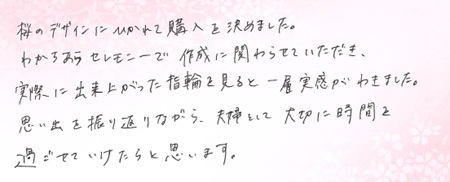 桜のデザインにひかれて購入を決めました。
わかちあうセレモニーで作成に関わらせていただき、
実際に出来上がった指輪を見ると一層実感がわきました。
思い出を振り返りながら、夫婦として大切に時間を
過ごせていけたらと思います。